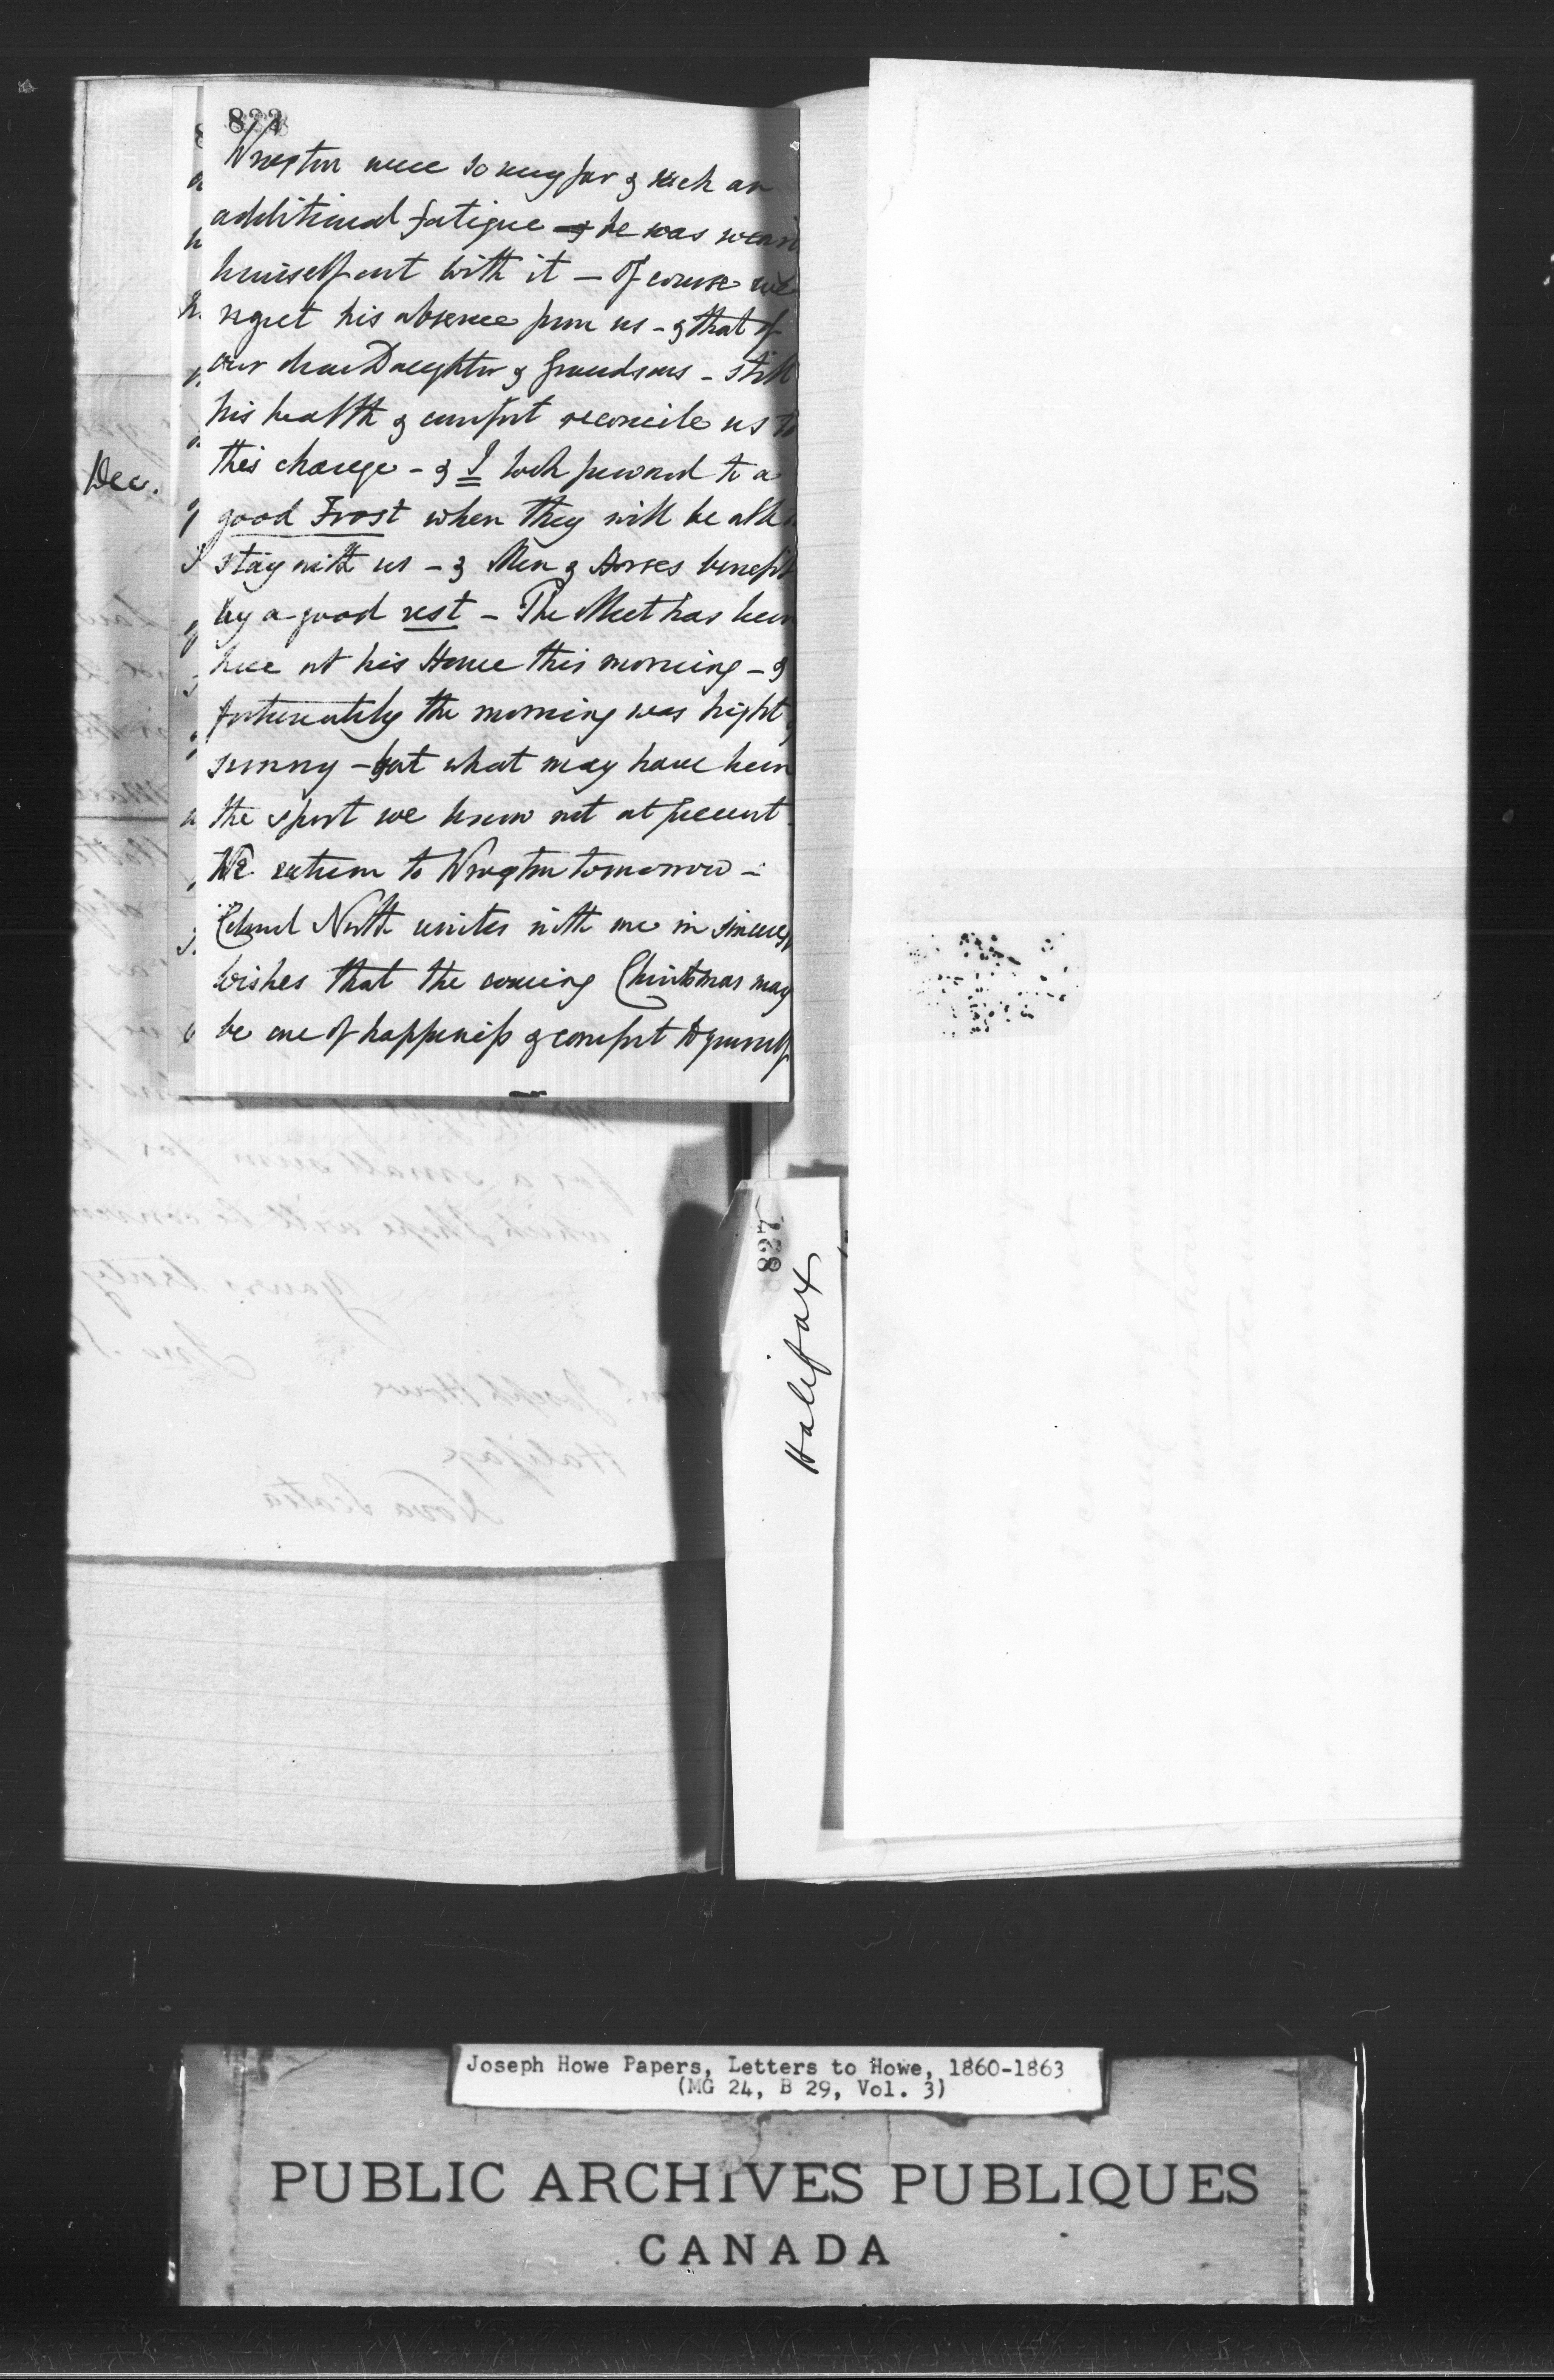 823
Wroxton were so very far & such an
additional fatigue & he was wearing
himself out with it – Of course we
regret his absence from us – & that of
our dear Daughter & Grandsons – still
his health & comfort reconcile us to
this change – & I look forward to a
good Frost when they will be able
stay with us – & Men & Horses benefit
by a good rest – The Meet has been
here at his House this morning – &
fortunately the morning was bright
sunny – but what may have been
the sport we know not at present
We return to Wroxton tomorrow –
Colonel North unites with me in sincere
wishes that the coming Christmas may
be one of happiness & comfort to yourself
Dec.
for a small sum for
which I hope will be
Yours truly
Joseph Howe
Halifax
Nova Scotia
827
Halifax
Joseph Howe Papers, Letters to Howe, 1860-1863
(MG 24, B 29, Vol. 3)
PUBLIC ARCHIVES PUBLIQUES
CANADA